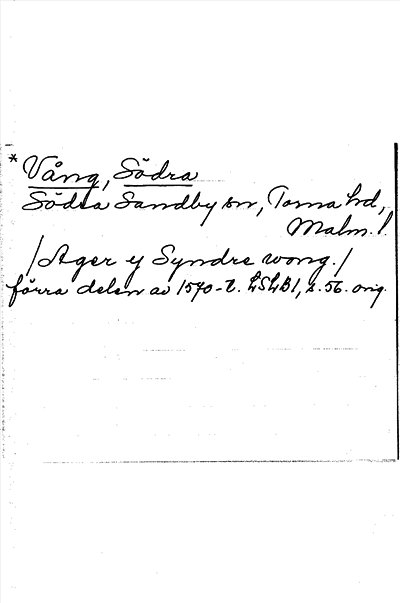 * Vång, Södra
Södra Sandby sn, Torna hd,
Malm. l.
/Ager y Syndre wong./
förra delen av 1570-t. LSLB1, s. 56. orig.